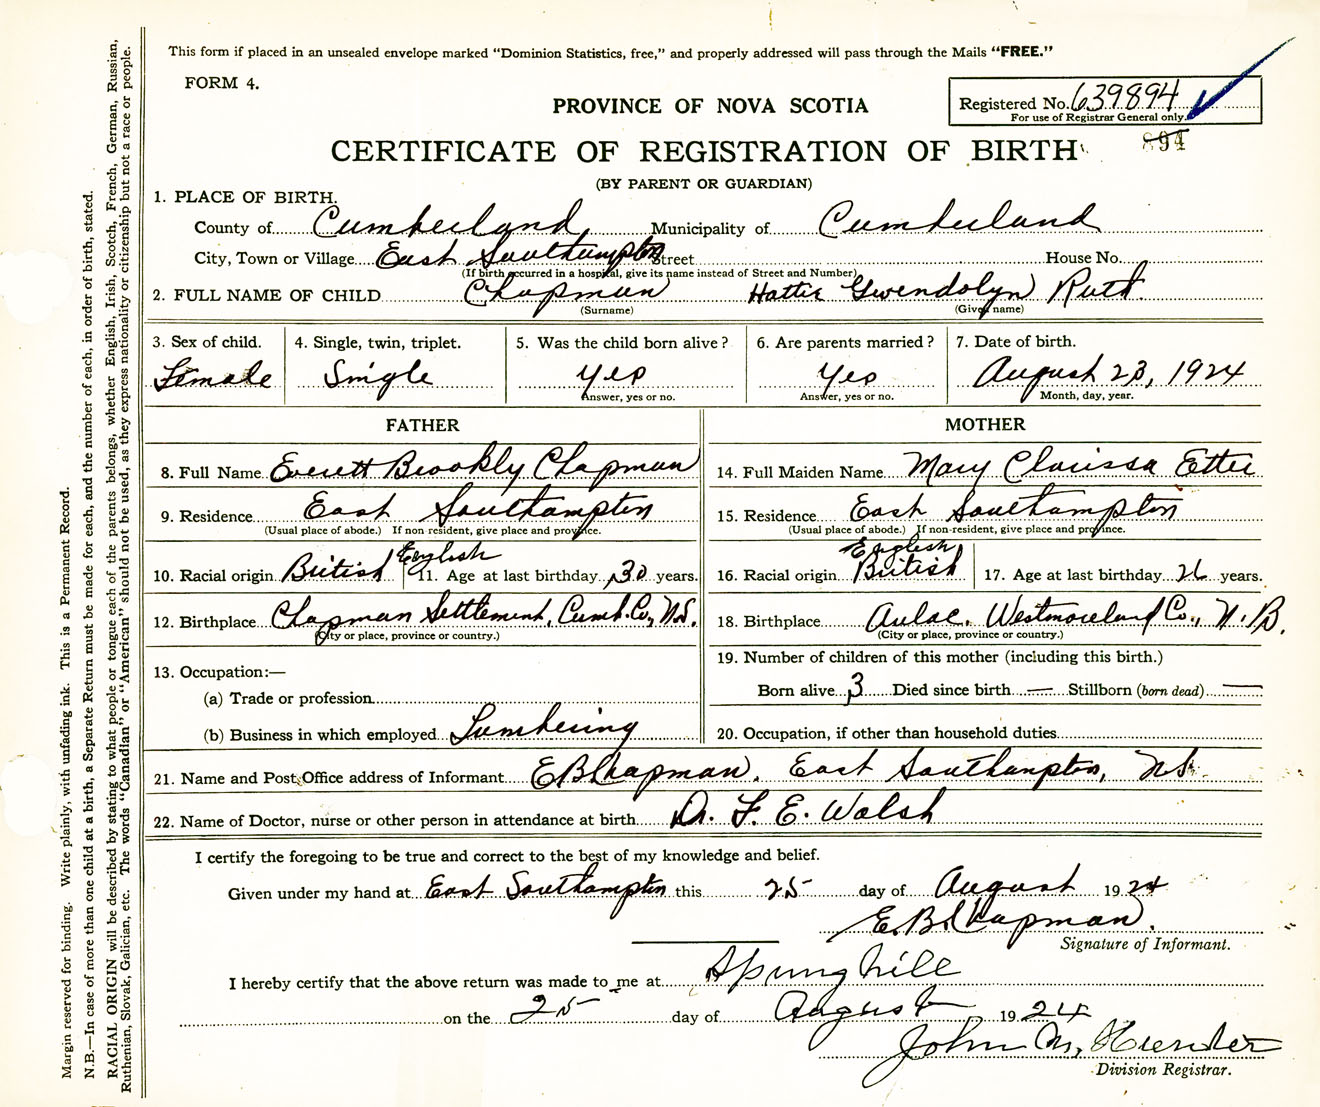 This form if placed in an unsealed envelope marked “Dominion Statistics, free,” and properly addressed will pass through the Mails “FREE.”
FORM 4.
PROVINCE OF NOVA SCOTIA
Registered No. 639894
For use of Registrar General only.
894
CERTIFICATE OF REGISTRATION OF BIRTH
(BY PARENT OR GUARDIAN)
1. PLACE OF BIRTH.
County of Cumberland Municipality of Cumberland
City, Town or Village East Southampton Street House No.
(If birth occurred in a hospital, give its name instead of Street and Number)
2. FULL NAME OF CHILD Chapman Hattie Gwendolyn Ruth
(Surname) (Given name)
3. Sex of child. 4. Single, twin, triplet. 5. Was the child born alive? 6. Are parents married? 7. Date of birth.
Female Single Yes Yes August 23, 1924
Answer, yes or no. Answer, yes or no. Month, day, year.
FATHER MOTHER
8. Full Name Everett Brookly Chapman 14. Full Maiden Name Mary Clarissa Etter
9. Residence East Southampton 15. Residence East Southampton
(Usual place of abode.) If non-resident, give place and province. (Usual place of abode.) If non-resident, give place and province.
English English
10. Racial origin British 11. Age at last birthday 30 years. 16. Racial origin British 17. Age at last birthday 26 years.
12. Birthplace Chapman Settlement, Cumb. Co., N.S. 18. Birthplace Aulac, Westmoreland Co., N.B.
(City or place, province or country.) (City or place, province or country.)
13. Occupation:— 19. Number of children of this mother (including this birth.)
(a) Trade or profession Born alive 3 Died since birth — Stillborn (born dead) —
(b) Business in which employed Lumbering 20. Occupation, if other than household duties
21. Name and Post Office address of Informant E B Chapman. East Southampton, N.S.
22. Name of Doctor, nurse or other person in attendance at birth Dr. F. E. Walsh
I certify the foregoing to be true and correct to the best of my knowledge and belief.
Given under my hand at East Southampton this 25 day of August 1924
E. B. Chapman.
Signature of Informant.
I hereby certify that the above return was made to me at Springhill
on the 25 day of August 1924
John M.
Division Registrar.
Margin reserved for binding. Write plainly, with unfading ink. This is a Permanent Record.
N.B.—In case of more than one child at a birth, a Separate Return must be made for each, and the number of each, in order of birth, stated.
RACIAL ORIGIN will be described by stating to what people or tongue each of the parents belongs, whether English, Irish, Scotch, French, German, Russian,
Ruthenian, Slovak, Galician, etc. The words “Canadian” or “American” should not be used, as they express nationality or citizenship but not a race or people.